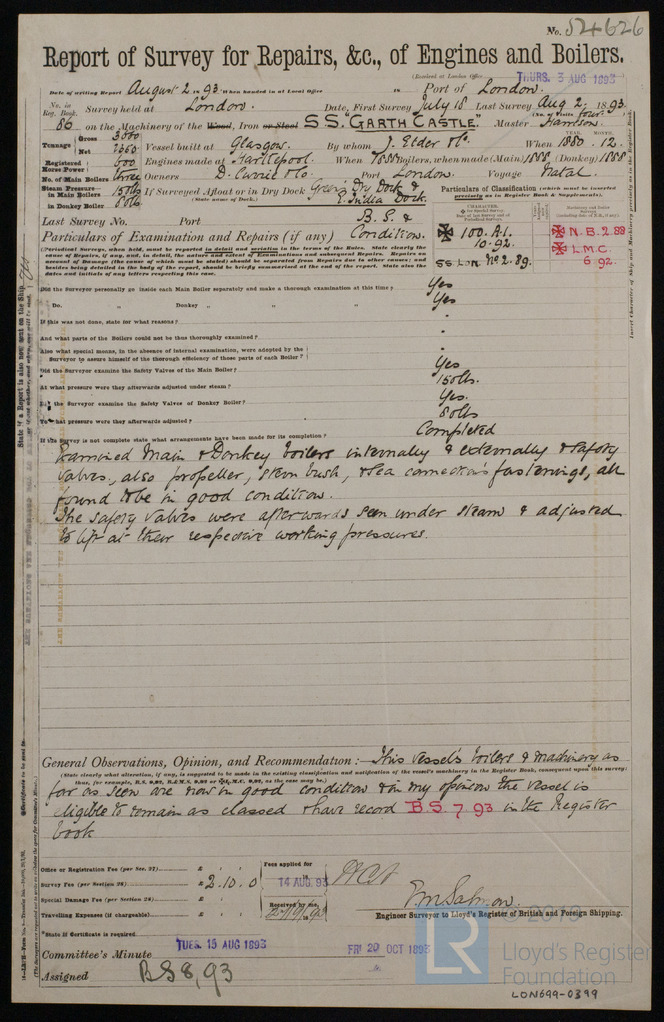 No. 54626
Report of Survey for Repairs, &c., of Engines and Boilers.
(Received at London Office THURS. 3 AUG 1893)
Date of writing Report August 2 1893 When handed in at Local Office 18 Port of London.
No. in Reg. Book. Survey held at London. Date, First Survey July 18 Last Survey Aug 2 1893
(No. of Visits four)
86 on the Machinery of the Wood, Iron or Steel S.S. "GARTH CASTLE" Master
Tonnage Gross Net Vessel built at Glasgow. By whom J. Elder & Co. When 1880. 12.
Registered Horse Power 600 Engines made at Hartlepool. When 1888 Boilers, when made (Main) 1888 (Donkey) 1888
No. of Main Boilers three Owners D. Currie & Co Port London. Voyage Natal.
Steam Pressure in Main Boilers 150 lbs in Donkey Boiler 80 lbs If Surveyed Afloat or in Dry Dock Green Dry Dock & E. India Dock.
(State name of Dock.)
Particulars of Classification (which must be inserted precisely as in Register Book & Supplements).
Last Survey No. Port
B.S. &
Particulars of Examination and Repairs (if any) Condition.
✠ 100.A.1.
10.92.
SS. Lon. No 2. 89.
✠ N.B. 2.88
✠ L.M.C.
6 92.
Did the Surveyor personally go inside each Main Boiler separately and make a thorough examination at this time? Yes
Do. " Donkey " " " Yes
If this was not done, state for what reasons?
And what parts of the Boilers could not be thus thoroughly examined?
Also what special means, in the absence of internal examination, were adopted by the Surveyor to assure himself of the thorough efficiency of those parts of each Boiler?
Did the Surveyor examine the Safety Valves of the Main Boiler? Yes
At what pressure were they afterwards adjusted under steam? 150 lbs.
Did the Surveyor examine the Safety Valves of Donkey Boiler? Yes.
To what pressure were they afterwards adjusted? 80 lbs
If the Survey is not complete state what arrangements have been made for its completion? Completed
Examined Main & Donkey boilers internally & externally & safety
valves, also propeller, stern bush, & sea connection's fastenings, all
found to be in good condition.
The safety valves were afterwards seen under steam & adjusted
to lift at their respective working pressures.
General Observations, Opinion, and Recommendation:— This vessel's boilers & machinery as
(State clearly what alteration, if any, is suggested to be made in the existing classification and notification of the vessel's machinery in the Register Book, consequent upon this survey:
thus, for example, B.S. 9,92, B.&M.S. 9,92 or ✠L.M.C. 9,92, as the case may be.)
far as seen are now in good condition & in my opinion the vessel is
eligible to remain as classed & have record B.S. 7.93 in the Register
book
Office or Registration Fee (per Sec. 27) £
Survey Fee (per Section 28) £ 2.10.0
Special Damage Fee (per Section 28) £
Travelling Expenses (if chargeable) £
Fees applied for
14 AUG. 93
Received by me,
Engineer Surveyor to Lloyd's Register of British and Foreign Shipping.
State if Certificate is required
Committee's Minute TUES. 15 AUG 1893 FRI 20 OCT 1893
Assigned B S 8,93
© 2019
LR
Lloyd's Register
Foundation
LON699-0399